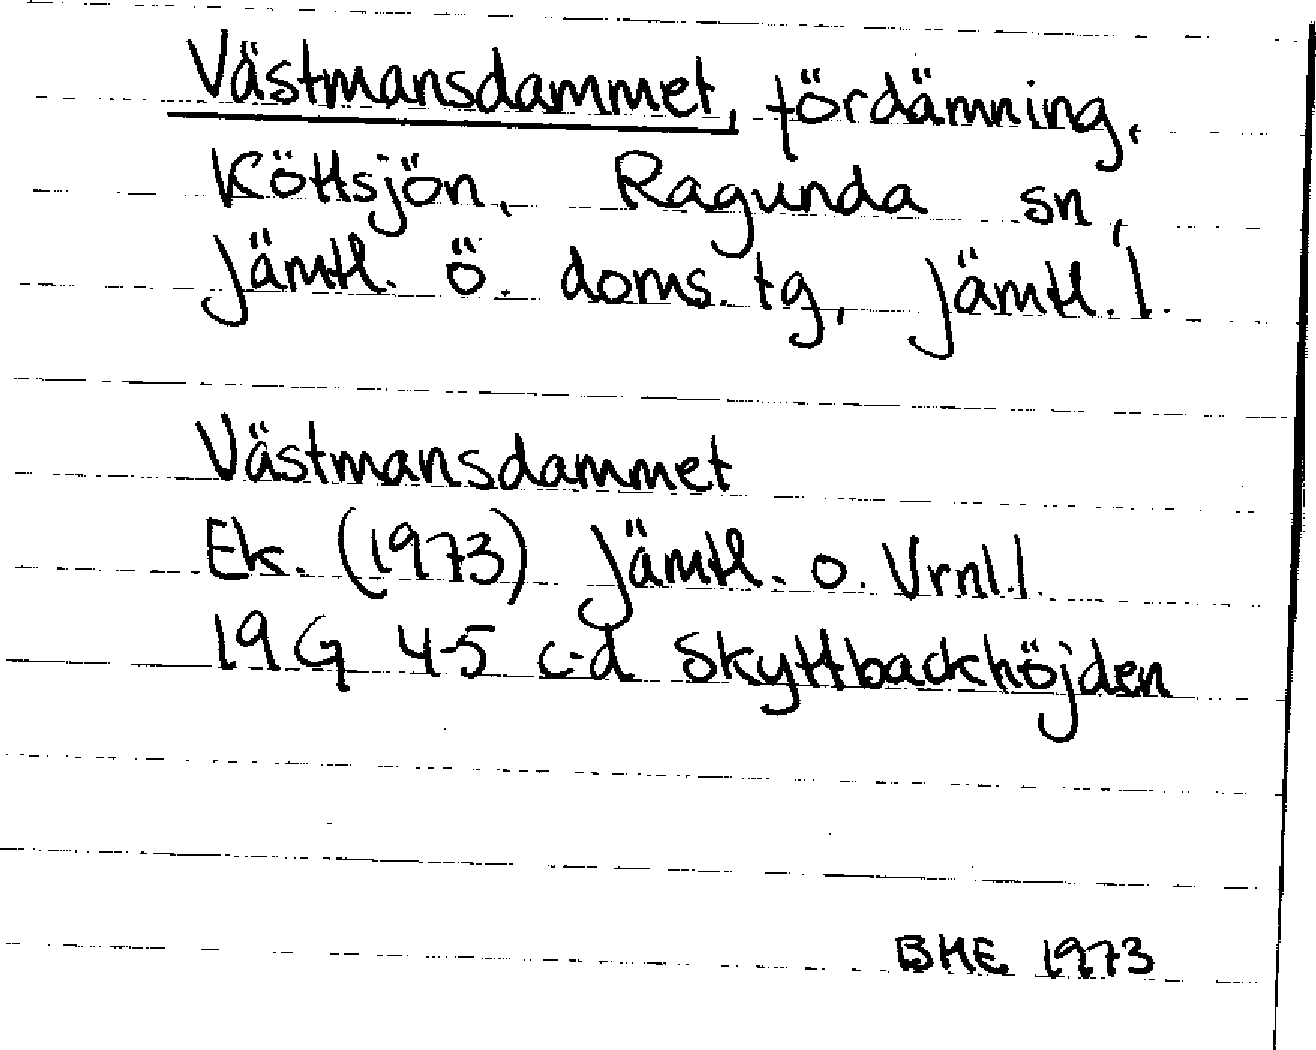 Västmansdammet, fördämning,
Köttsjön, Ragunda sn,
Jämtl. ö. doms. tg, Jämtl. l.
Västmansdammet
Ek. (1973) Jämtl. o. Vrnl. l.
19 G 4-5 c-d Skyttbackhöjden
BME 1973